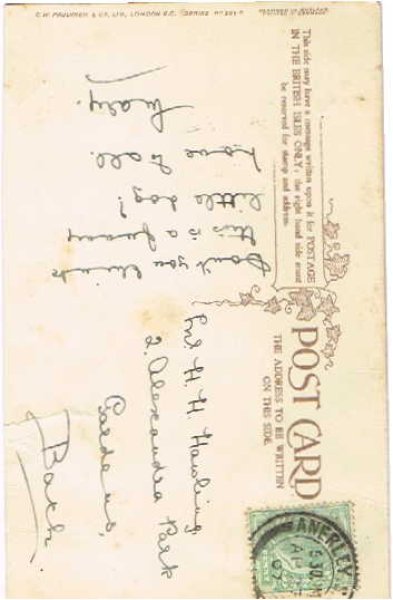 C.W. FAULKNER & CO. LTD., LONDON E.C.
This side may have a message written upon it for POSTAGE
IN THE BRITISH ISLES ONLY; the right hand side must
be reserved for stamp and address.
POST CARD
THE ADDRESS TO BE WRITTEN
ON THIS SIDE
Don't you think
this is a
little dog?
Love
to all.
H. H. Hawling
2. Alexandra Park
Gardens,
Bath.
ANERLEY
5.30
07